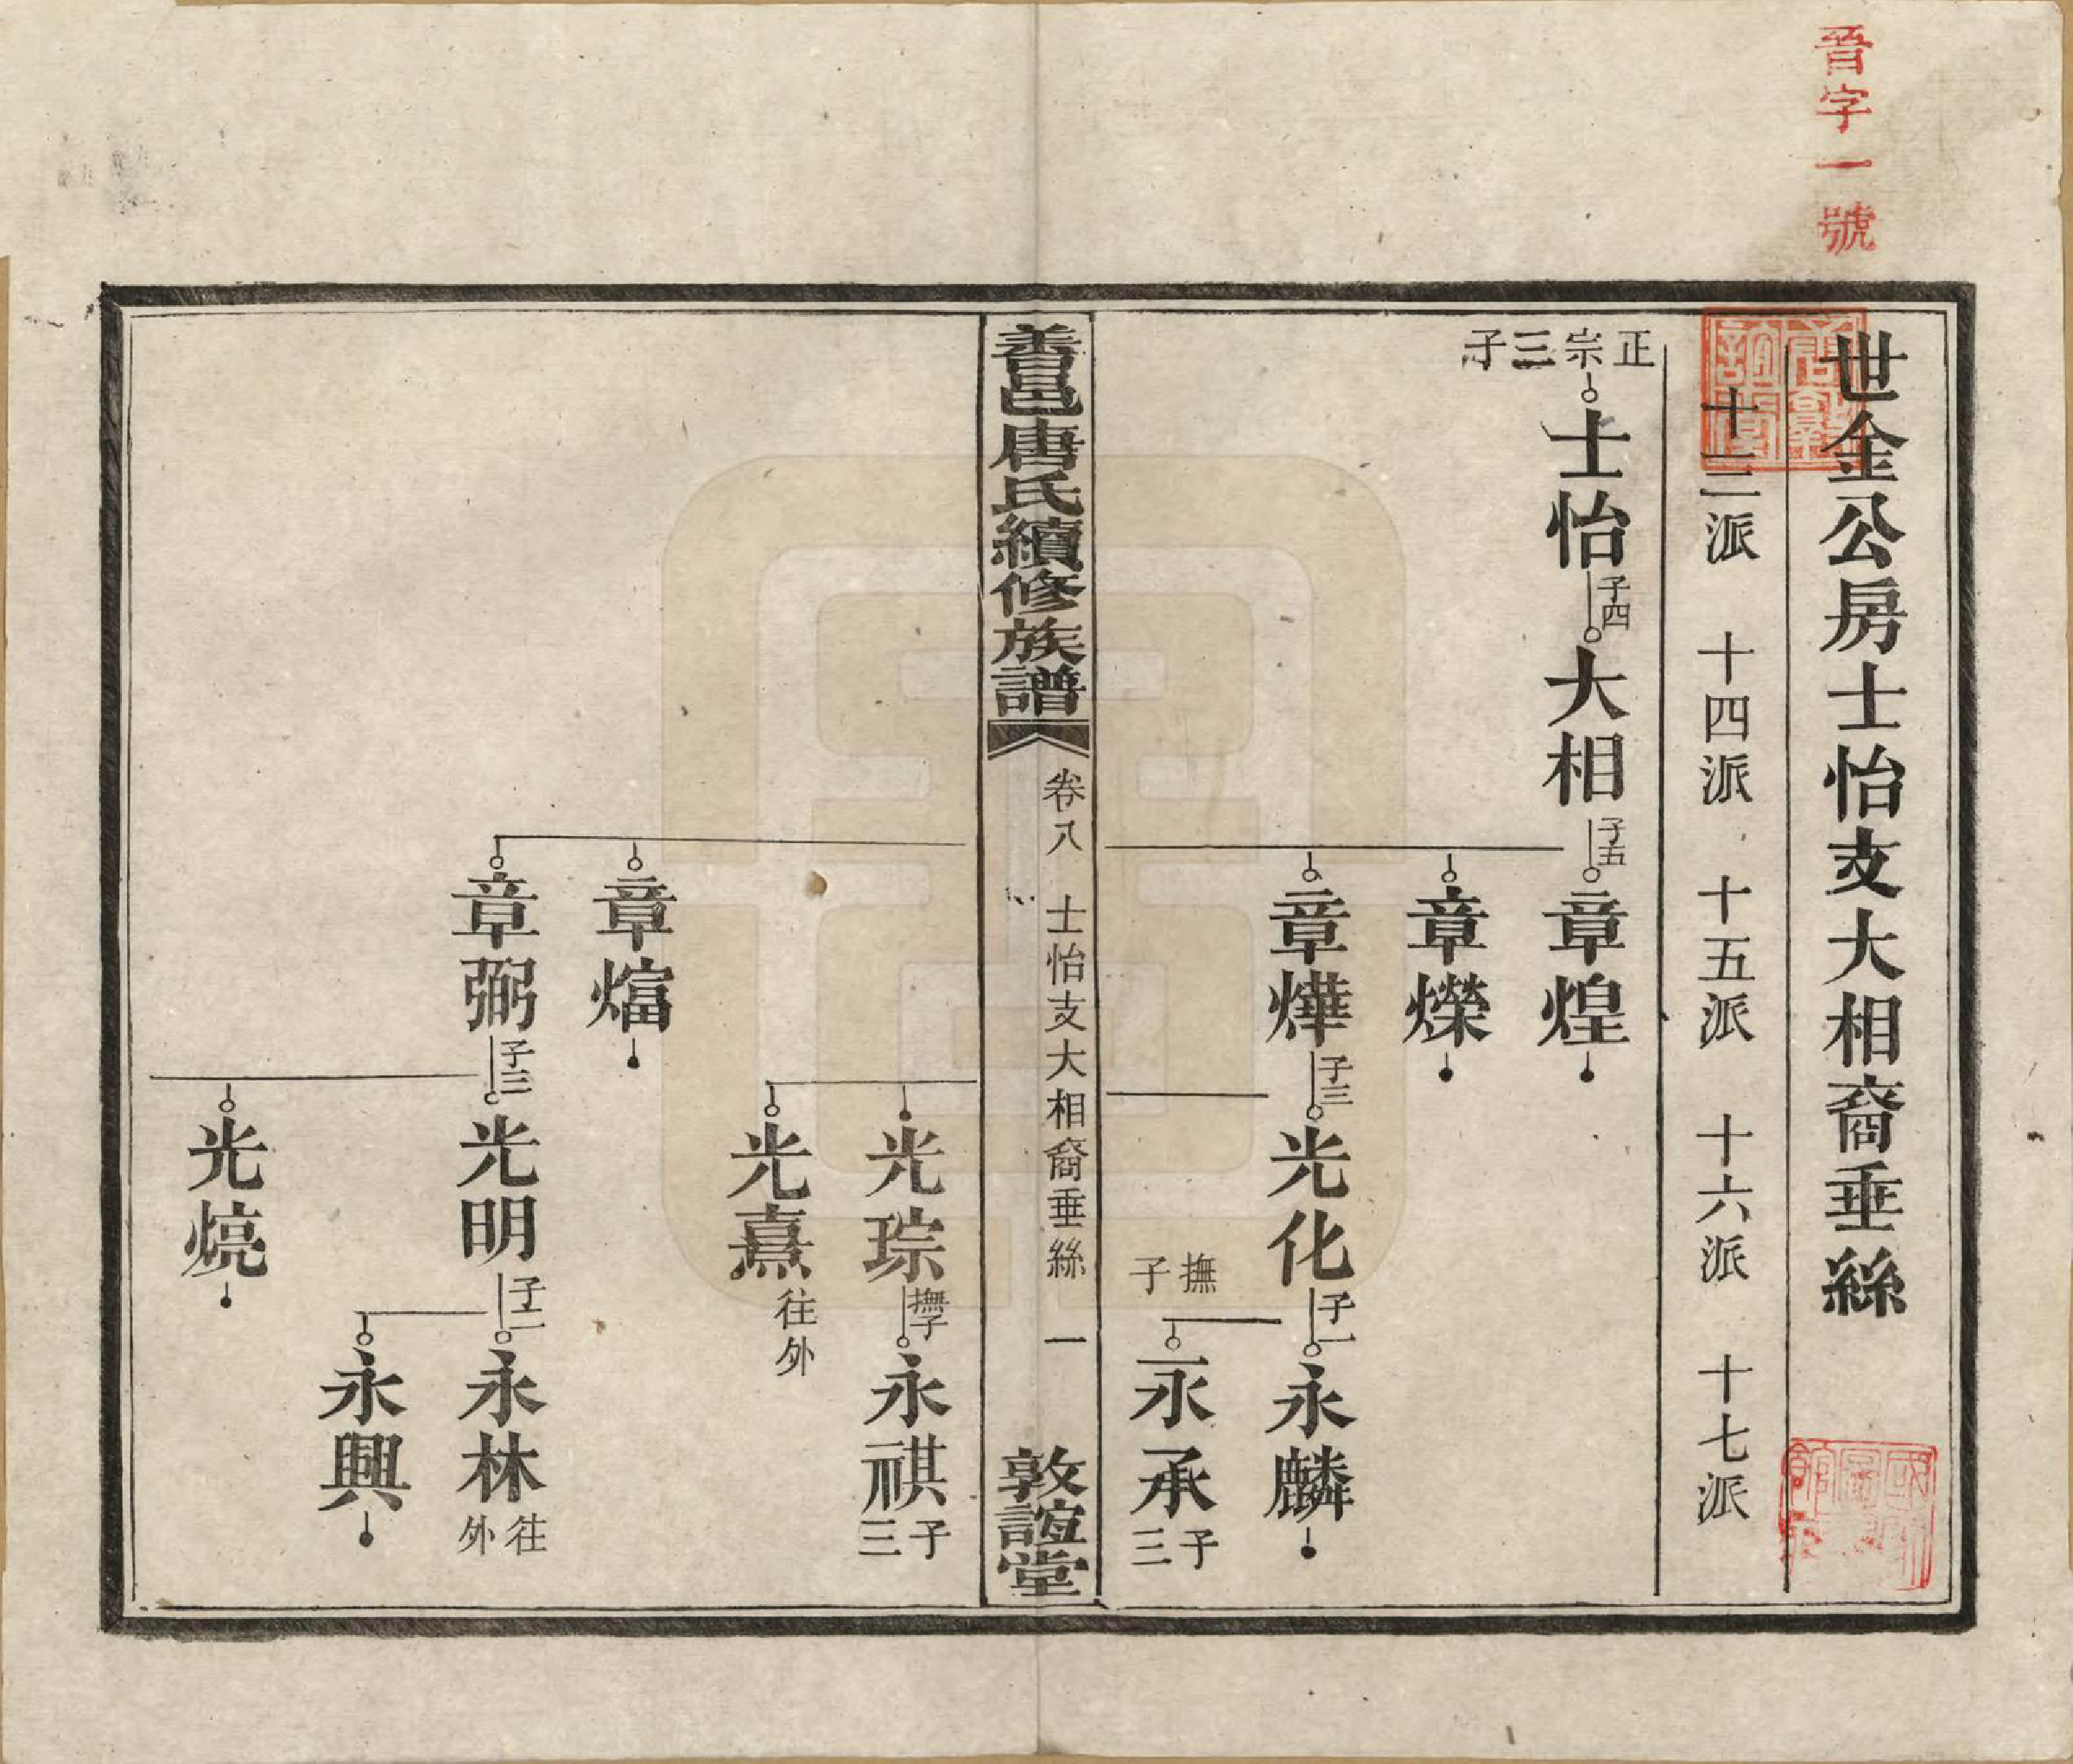 晉字一號
世金公房士怡支大相裔垂絲
十三派 十四派 十五派 十六派 十七派
正宗三子
士怡 子四 大相 子五 章煌
章爍
章燁 子三 光化 子二 永麟
撫子
永承 子三
善邑唐氏續修族譜 卷八 士怡支大相裔垂絲 一 敦誼堂
光琮 撫子 永祺 子三
光熹 往外
章煏
章弼 子三 光明 子二 永林 往外
永興
光熇